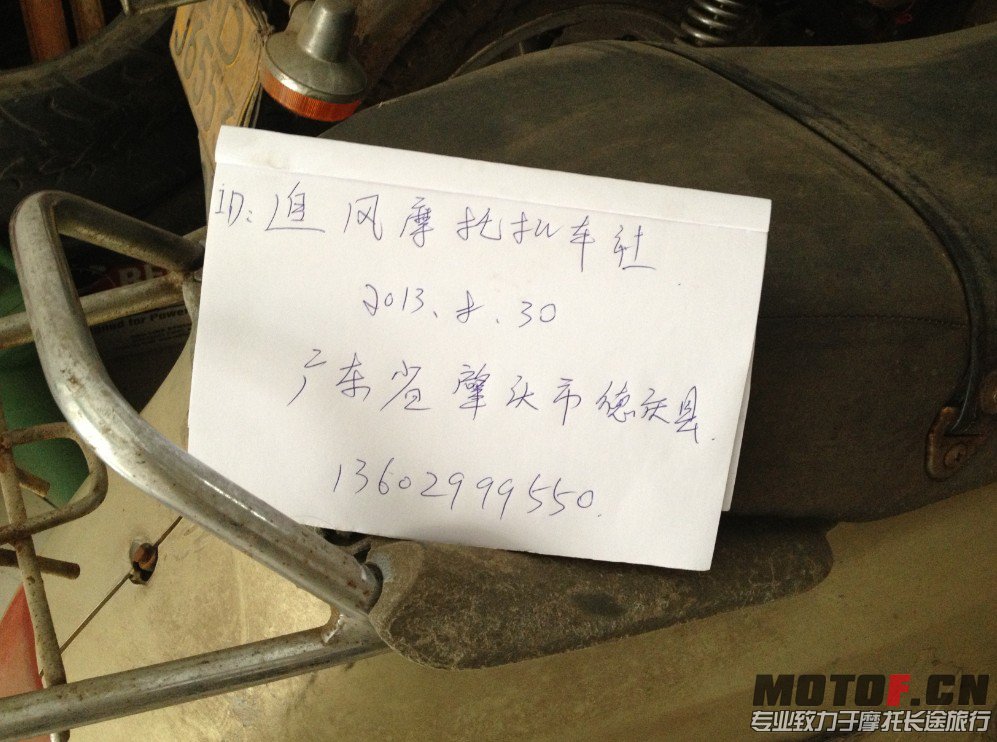 ID:追风摩托机车社
2013.8.30
广东省肇庆市德庆县.
13602999550.
MOTOF.CN
专业致力于摩托长途旅行